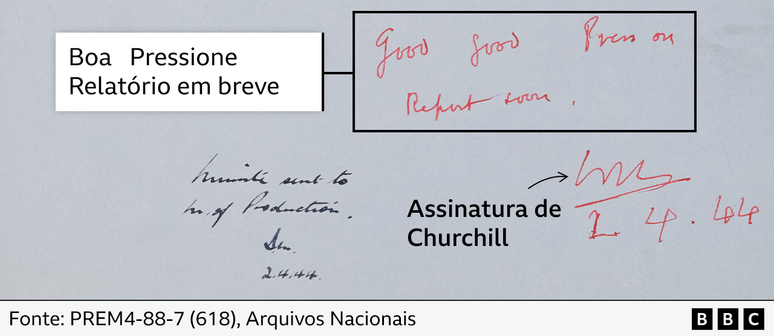 Boa Pressione
Relatório em breve
Good Good Press on
Report soon.
Minute sent to
M. of Production.
2.4.44.
Assinatura de
Churchill
2. 4. 44
Fonte: PREM4-88-7 (618), Arquivos Nacionais
BBC